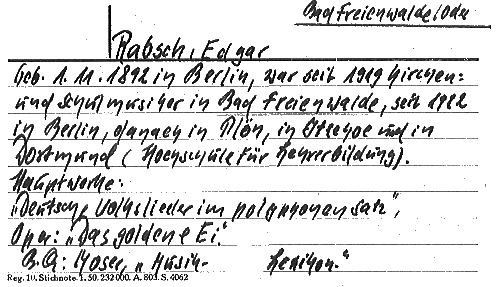 Bad Freienwalde/Oder
Rabsch, Edgar
Geb. 1.11.1892 in Berlin, war seit 1919 Kirchen=
und Schulmusiker in Bad Freienwalde, seit 1922
in Berlin, danach in Plön, in Itzehoe und in
Dortmund (Hochschule für Lehrerbildung).
Hauptwerke:
„Deutsche Volkslieder im polyphonen Satz",
Oper: „Das goldene Ei."
B.Q: Moser, „Musik- Lexikon."
Reg. 10. Stichnote 1. 50. 232 000. A. 803. S. 4062